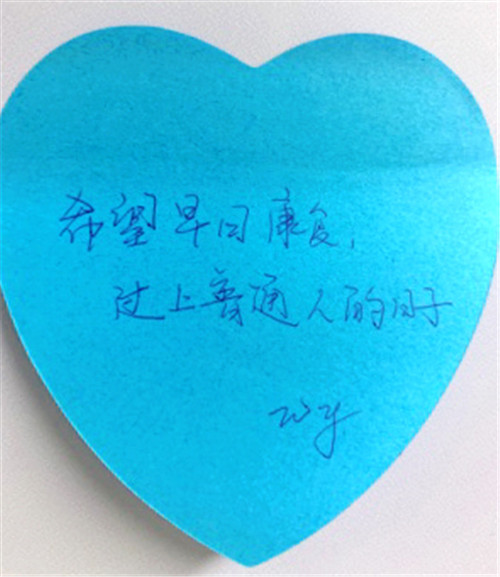 希望早日康复，
过上普通人的日子